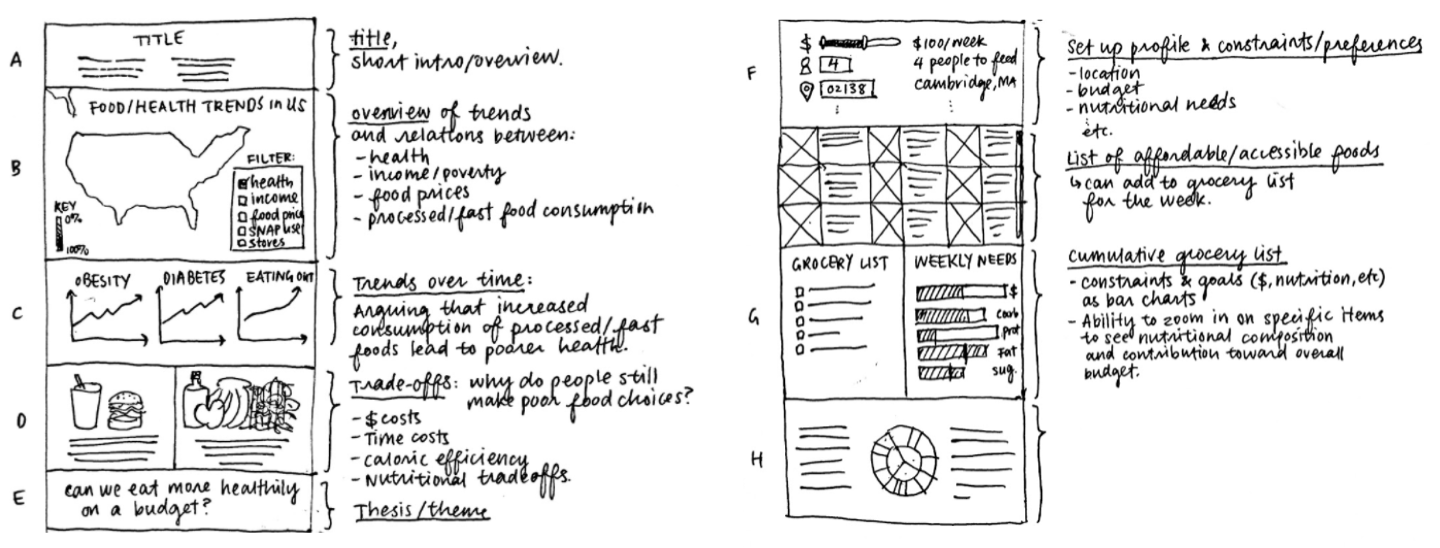 A
TITLE
title,
short intro/overview.
B
FOOD/HEALTH TRENDS in US
FILTER:
health
income
food price
SNAP use
stores
KEY
0%
100%
overview of trends
and relations between:
- health
- income/poverty
- food prices
- processed/fast food consumption
C
OBESITY
DIABETES
EATING OUT
Trends over time:
Arguing that increased
consumption of processed/fast
foods lead to poorer health.
D
Trade-offs: why do people still
make poor food choices?
- $ costs
- Time costs
- caloric efficiency
- Nutritional tradeoffs.
E
can we eat more healthily
on a budget?
Thesis/theme
F
$
$100/week
4
4 people to feed
02138
cambridge, MA
Set up profile & constraints/preferences
- location
- budget
- nutritional needs
etc.
List of affordable/accessible foods
↳ can add to grocery list
for the week.
G
GROCERY LIST
WEEKLY NEEDS
$
carb
prot
Fat
sug.
cumulative grocery list
- constraints & goals ($, nutrition, etc)
as bar charts
- Ability to zoom in on specific items
to see nutritional composition
and contribution toward overall
budget.
H